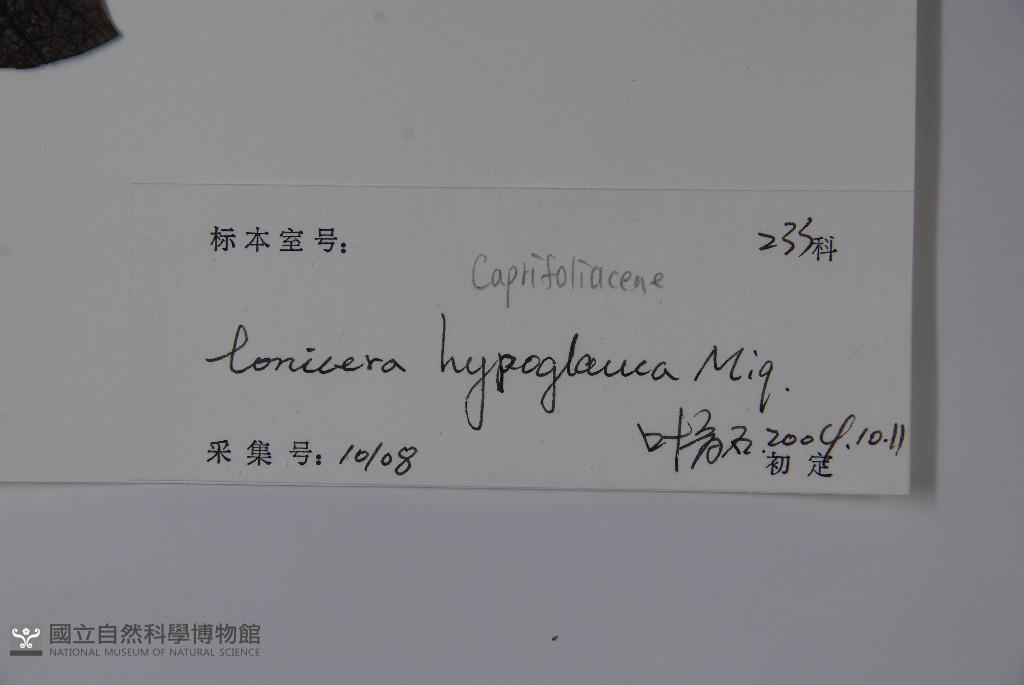 标本室号：
233科
Caprifoliaceae
Lonicera hypoglauca Miq.
采集号：10108
叶 2004.10.11
初定
國立自然科學博物館
NATIONAL MUSEUM OF NATURAL SCIENCE